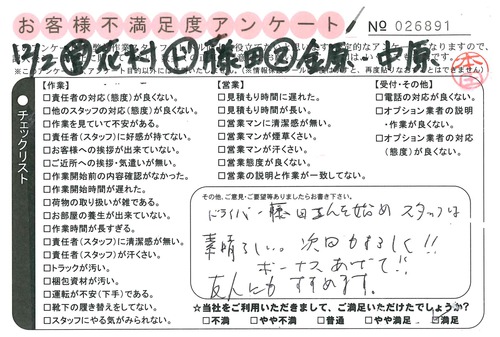 お客様不満足度アンケート
№ 026891
12/2 花村 藤田 ② 金原 中原
※このアンケートアンケート目的以外には
チェックリスト
【作業】
□責任者の対応(態度)が良くない。
□他のスタッフの対応(態度)が良くない。
□作業を見ていて不安がある。
□責任者(スタッフ)に好感が持てない。
□お客様への挨拶が出来ていない。
□ご近所への挨拶・気遣いが無い。
□作業開始前の内容確認がなかった。
□作業開始時間が遅れた。
□荷物の取り扱いが雑である。
□お部屋の養生が出来ていない。
□作業時間が長すぎる。
□責任者(スタッフ)に清潔感が無い。
□責任者(スタッフ)が汗くさい。
□トラックが汚い。
□梱包資材が汚い。
□運転が不安(下手)である。
□靴下の履き替えをしてない。
□スタッフにやる気がみられない。
【営業】
□見積もり時間に遅れた。
□見積もり時間が長い。
□営業マンに清潔感が無い。
□営業マンが煙草くさい。
□営業マンが汗くさい。
□営業態度が良くない。
□営業の説明と作業が一致してない。
【受付・その他】
□電話の対応が良くない。
□オプション業者の説明
・作業が良くない。
□オプション業者の対応
(態度)が良くない。
その他、ご意見・ご要望等ありましたらお書き下さい。
ドライバー藤田さんを始めスタッフは
素晴らしい。次回もよろしく!!
ボーナスあげて!!
友人にもすすめます。
☆当社をご利用いただきまして、ご満足いただけたでしょうか?
□不満 □やや不満 □普通 □やや満足 □満足